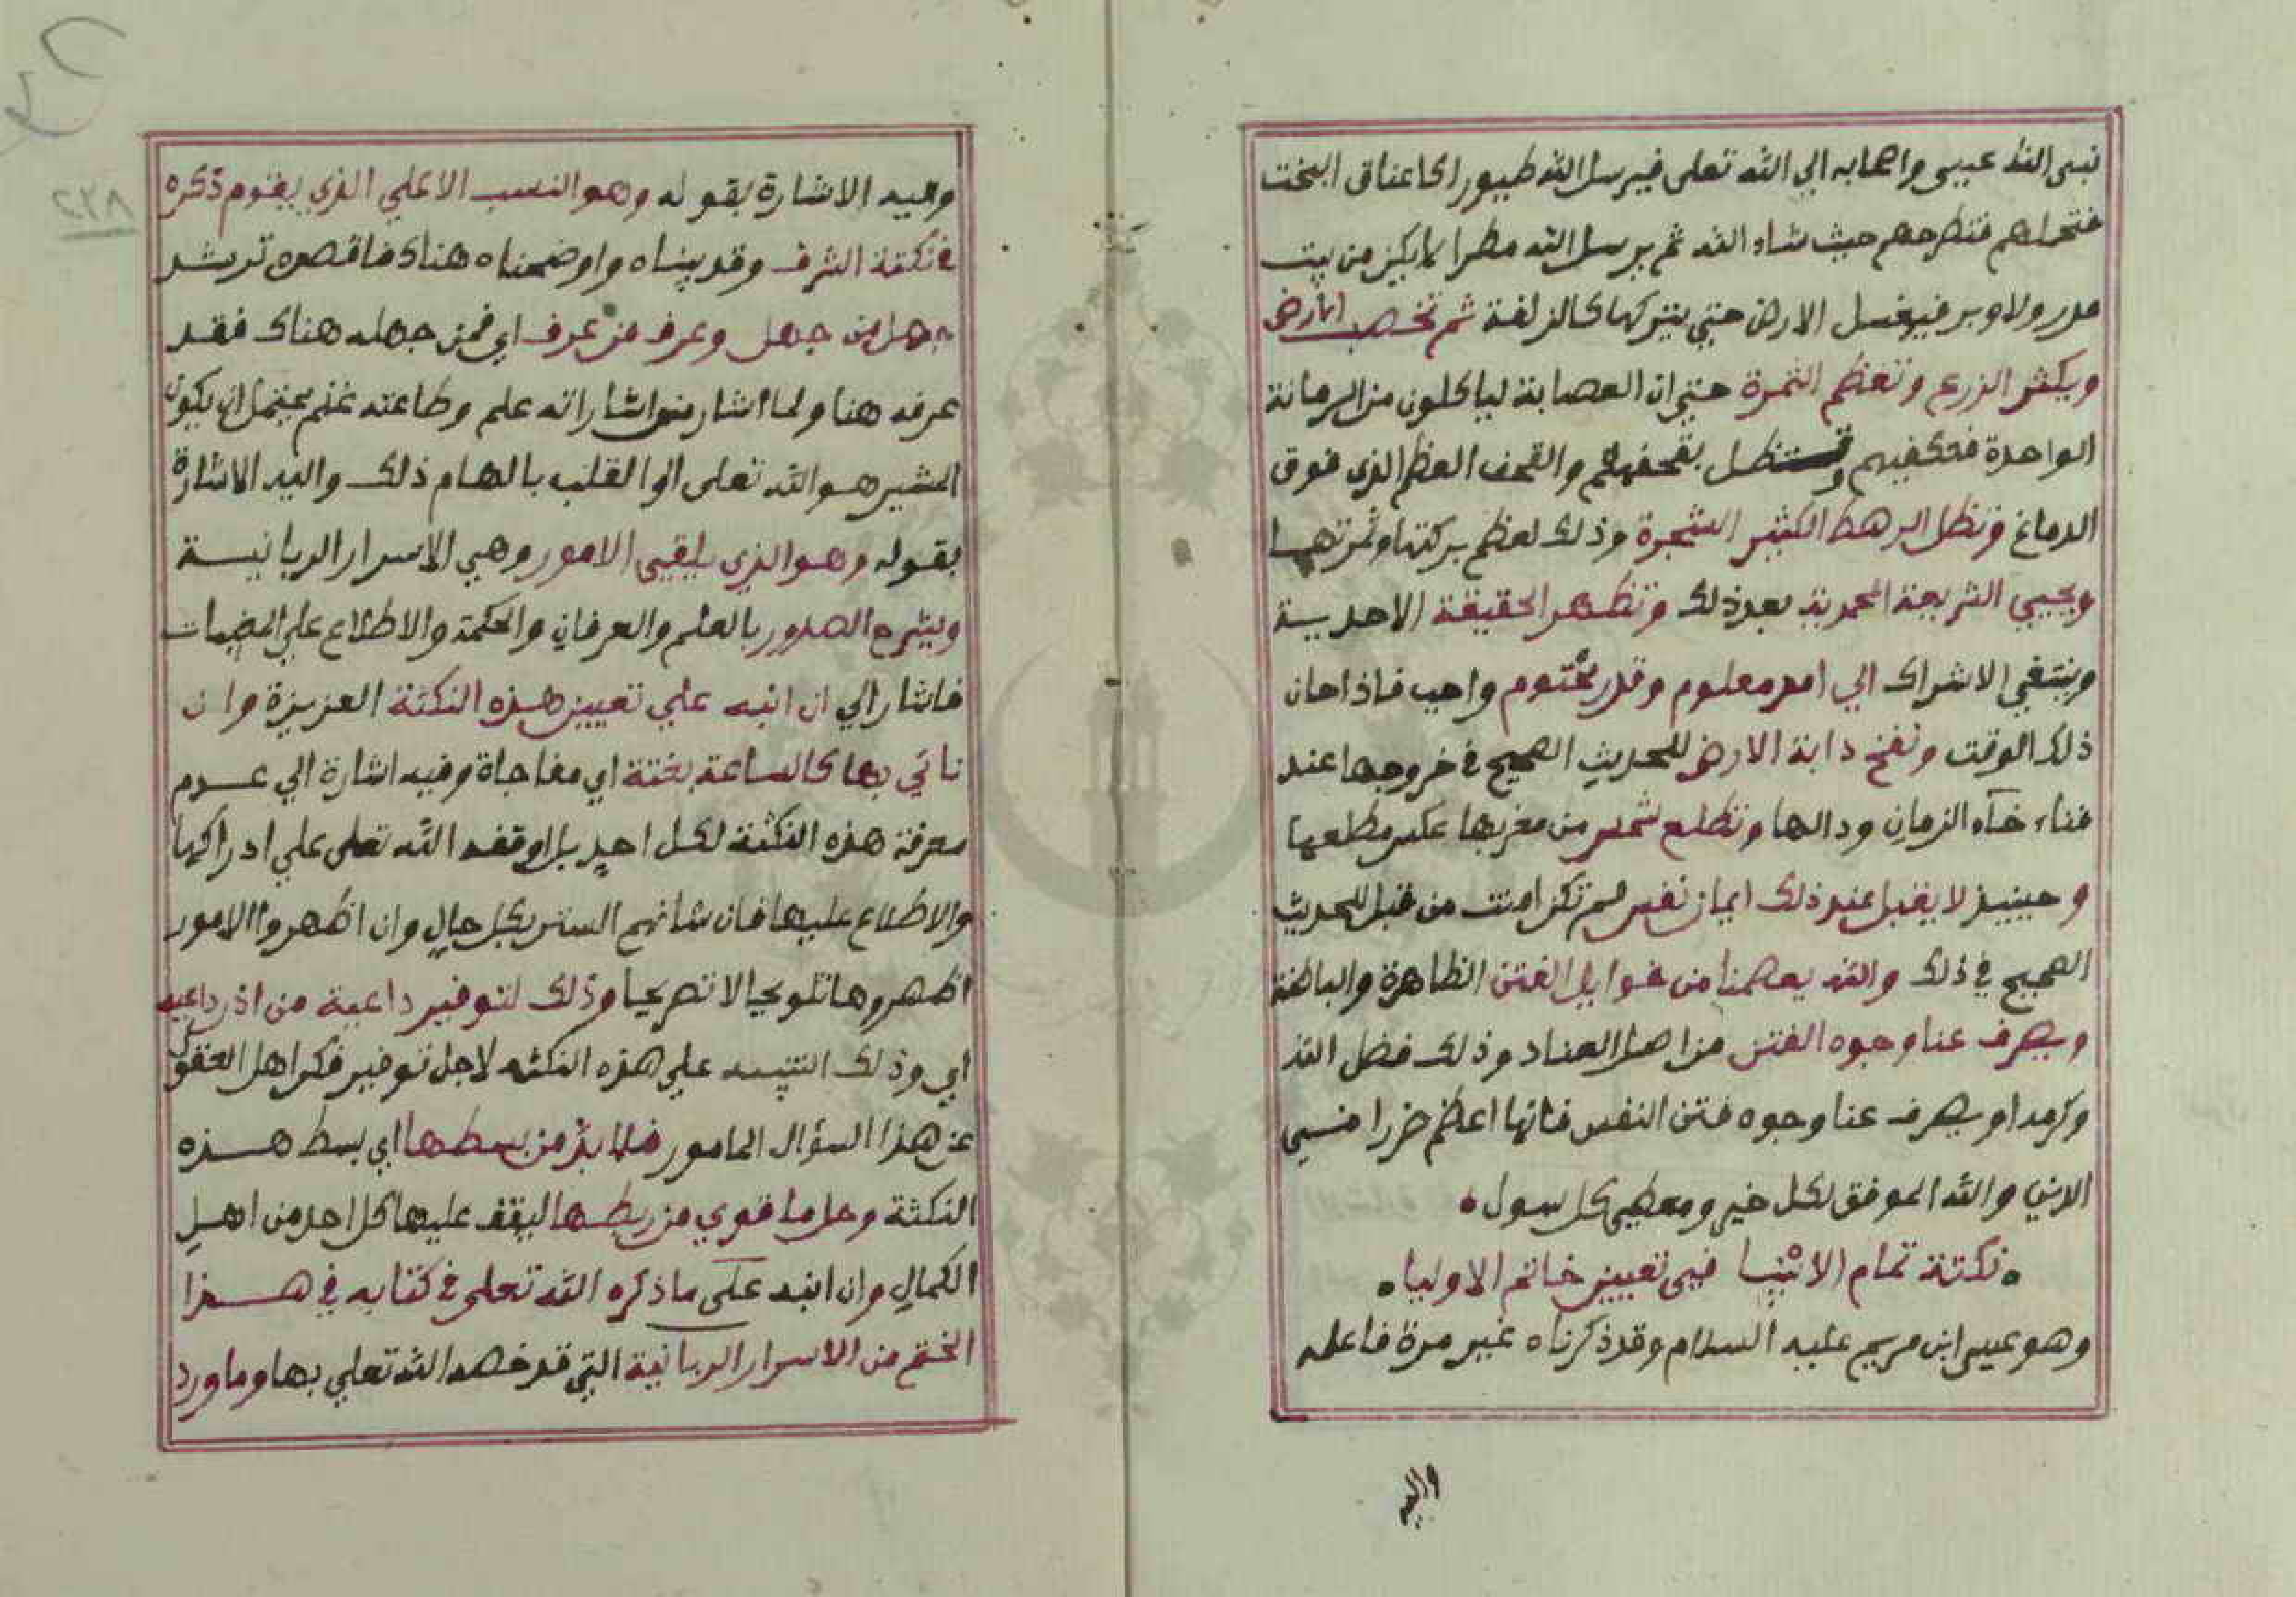 نبى الله عيسى واصحابه الي الله تعلى فيرسل الله طيورا كاعناق البخت
فتحملهم فتطرحهم حيث شاء الله ثم يرسل الله مطرا لا يكن من بيت
مدر ولا وبر فيغسل الارض حتي يتركها كالزلفة ثم تخصب الارض
ويكثر الزرع وتعظم الثمرة حتي ان العصابة لياكلون من الرمانة
الواحدة فتكفيهم وتستظل بقحفهم والقحف العظم الذي فوق
الدماغ وتظل الرهط الكثير الشجرة وذلك لعظم بركتها وثمرتها
ويحيي الشريعة المحمدية بعد ذلك وتظهر الحقيقة الاحدية
وينتفي الاشراك الي امر معلوم وقدر محتوم واجب فاذا حان
ذلك الوقت ونفخ دابة الارض للحديث الصحيح في خروجها عند
فناء خاء الزمان ودالها وتطلع شمس من مغربها عكس مطلعها
وحينيذ لا يقبل عند ذلك ايمان نفس لم تكن امنت من قبل للحديث
الصحيح في ذلك والله يعصمنا من غوايل الفتن الظاهرة والباطنة
ويصرف عنا وجوه الفتن من اهل العناد وذلك فضل الله
وكرمه او يصرف عنا وجوه فتن النفس فانها اعظم ضررا من سي
الانس والله الموفق لكل خير ومعطي كل سول
نكتة تمام الانبيا في تعيين خاتم الاوليا
وهو عيسى ابن مريم عليه السلام وقد ذكرناه غير مرة فاعلم
واليه
٢٣٨
واليه الاشارة بقوله وهو النسب الاعلي الذي يقوم ذكره
في نكتة الشرف وقد بيناه واوضحناه هناك فاقصده ترشد
جهل من جهل وعرف من عرف اي فمن جهله هناك فقد
عرفه هنا ولما اشار من اشاراته علم وطاعته غنم يحتمل ان يكون
المشير هو الله تعلى الى القلب بالهام ذلك واليه الاشارة
بقوله وهو الذي يلقي الامور وهي الاسرار الربانية
ويشرح الصدور بالعلم والعرفان والحكمة والاطلاع علي المغيبات
فاشار الي ان انبه علي تعيين هذه النكتة العزيزة وان
ناتي بها كالساعة بغتة اي مفاجاة وفيه اشارة الي عدم
معرفة هذه النكتة لكل احد بل اوقفه الله تعلى علي ادراكها
والاطلاع عليها فان شانهم الستر بكل حال وان اظهروا الامور
اظهروها تلويحا لا تصريحا وذلك لتوفير داعية من اذن داعيه
اي وذلك التنبيه علي هذه النكتة لاجل توفير فكر اهل العقول
عن هذا السؤال المامور فلا بد من بسطها اي بسط هذه
النكتة وحل ما قوي من ربطها ليقف عليها كل احد من اهل
الكمال وان انبه على ما ذكره الله تعلى في كتابه في هذا
الختم من الاسرار الربانية التي قد خصه الله تعلي بها وما ورد